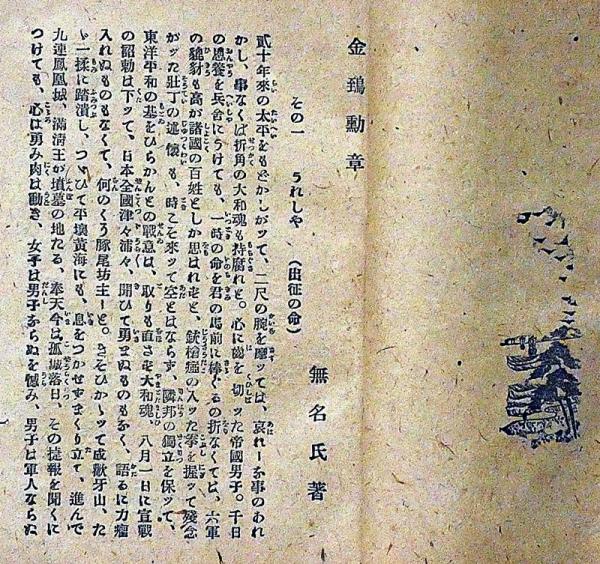 金鵄勳章
その一 うれしや (出征の命)
無名氏著
貳十年來の太平をもどかしがッて、二尺の腕を摩ッては、哀れ一ッ事のあれ
かし、事なくば折角の大和魂も持腐れと。心に齒を切ッた帝國男子。千日
の恩養を兵舍にうけても、一時の命を君の馬前に捧ぐるの折なくては、六軍
の貔貅も高が諸國の百姓としか思はれぬと、銃槍瘤の入ッた拳を握ッて殘念
がッた壯丁の述懷も、時こそ來ッて空とはならず、隣邦の獨立を保ッて、
東洋平和の基をひらかんとの戰意は、取りも直さず大和魂、八月一日に宣戰
の詔勅は下ッて、日本全國津々浦々、聞ひて勇まぬものもなく、語るに力瘤
入れぬものもなくて、何のくう豚尾坊主ーと。きそひかゝッて成歡牙山、た
ゞ一揉に踏潰し、つゞひて平壤黄海にも、息をつかせずまくり立て、進んで
九連鳳凰城、滿淸王が墳墓の地たる、奉天今は孤城落日、その捷報を聞くに
つけても、心は勇み肉は動き、女子は男子ならぬを憾み、男子は軍人ならぬ